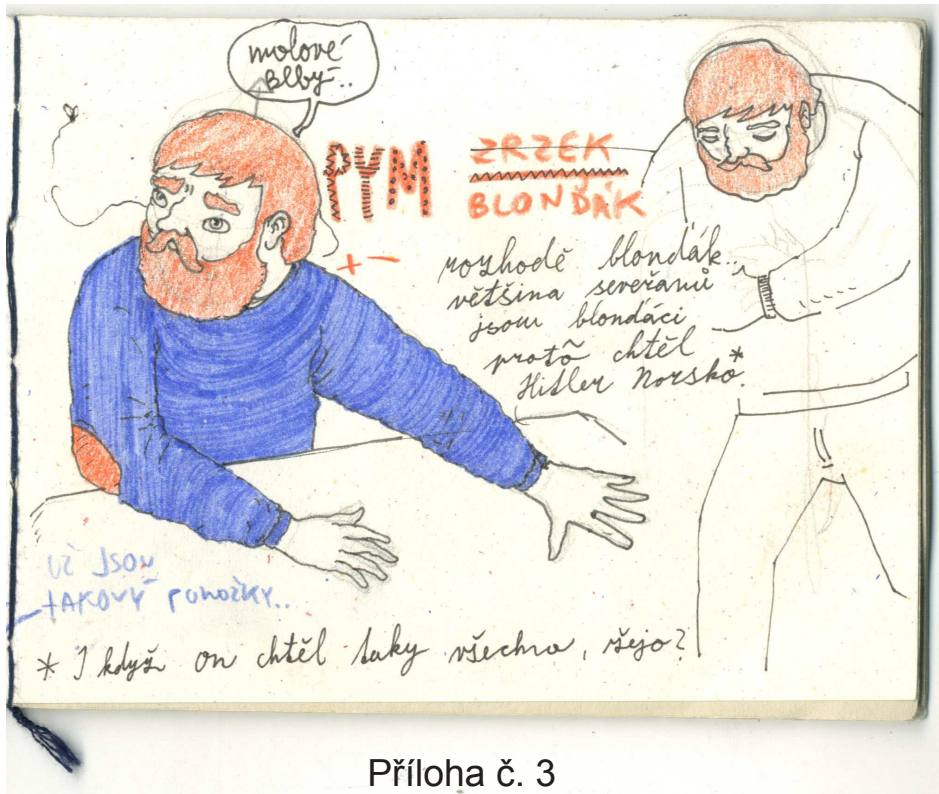 molové
blbý..
PYM
ZRZEK
BLONĎÁK
+ -
rozhodě blonďák..
většina severanů
jsou blonďáci
proto chtěl
Hitler Norsko*.
UŽ JSOU
TAKOVÝ PONOŽKY..
* I když on chtěl taky všechno, žejo?
Příloha č. 3